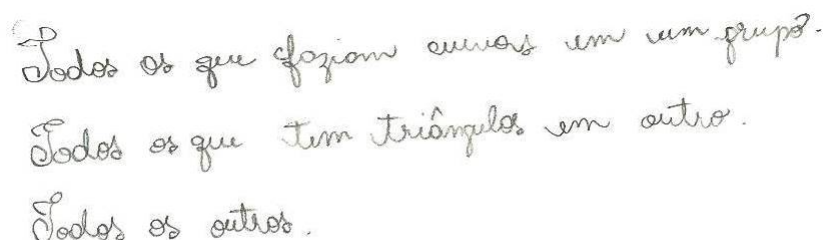 Todos os que faziam curvas em um grupo.
Todos os que tem triângulos em outro.
Todos os outros.